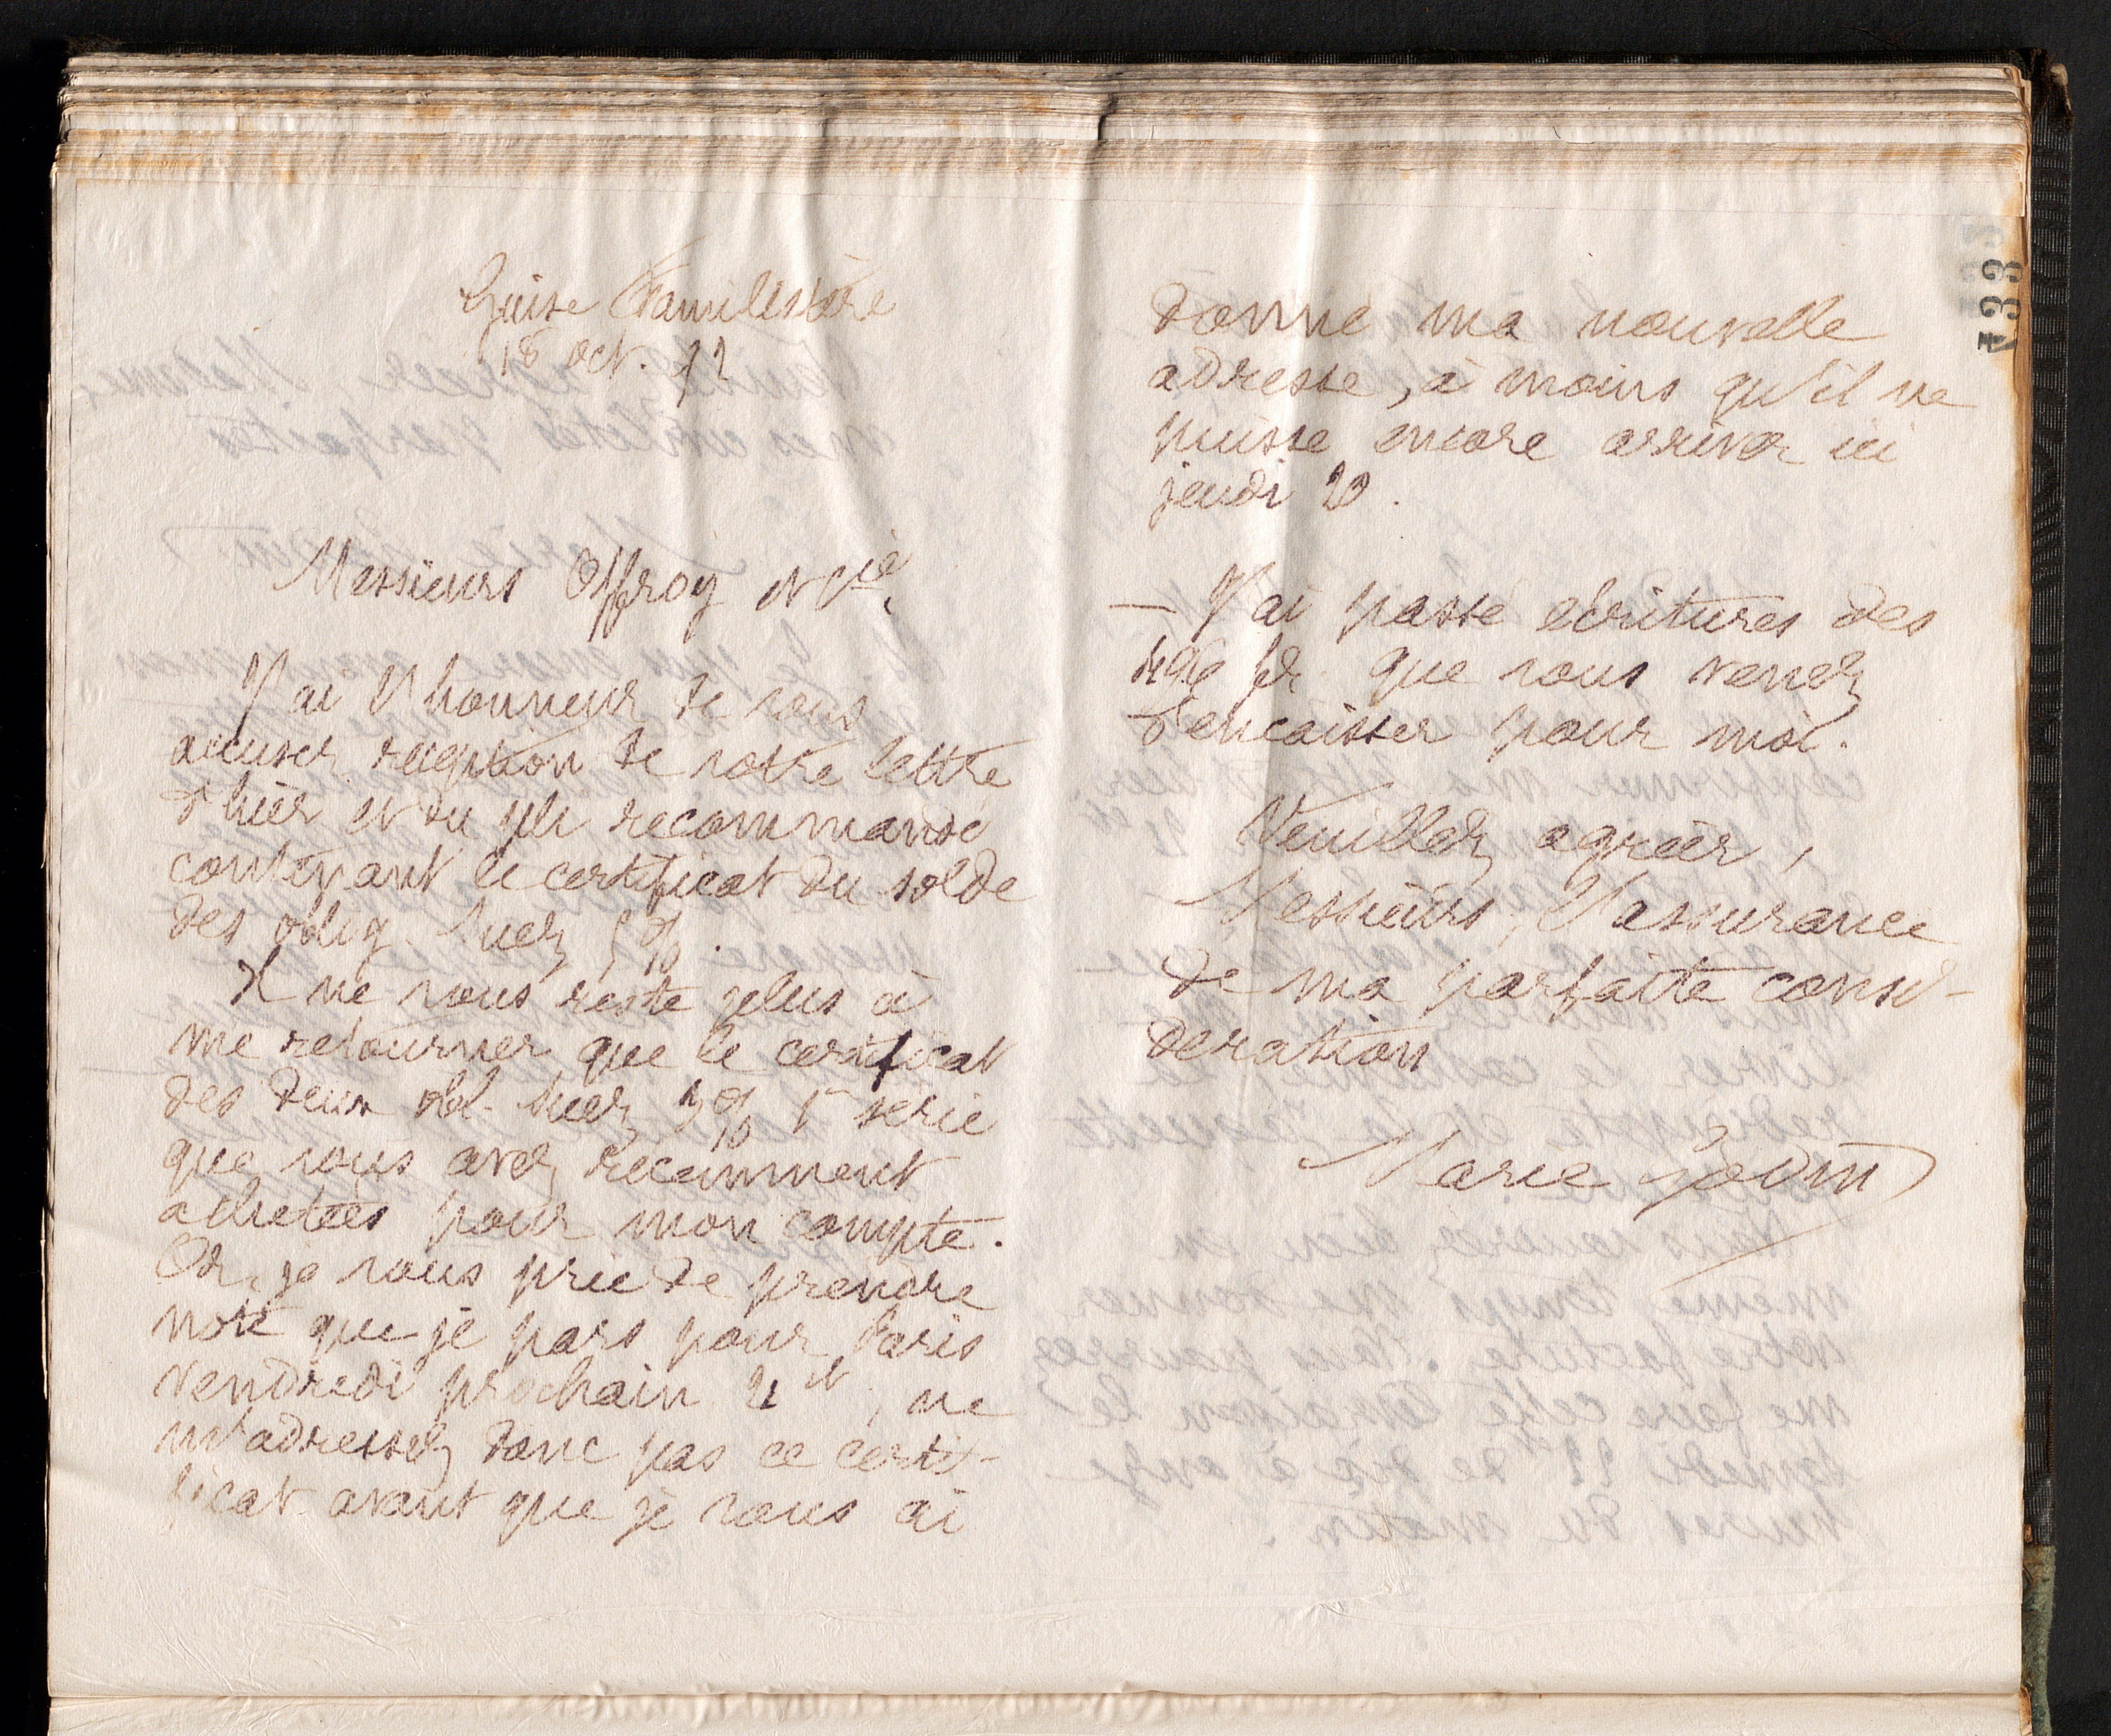 Guise Familistère
18 oct. 92
Messieurs Offroy et Cie,
J'ai l'honneur de vous
accuser réception de votre lettre
d'hier et du pli recommandé
contenant le certificat du solde
des oblig. Suez 5%.
Il ne vous reste plus à
me retourner que le certificat
des deux obl. Suez 3% 1re série
que vous avez récemment
achetées pour mon compte.
Or, je vous prie de prendre
note que je pars pour Paris
vendredi prochain 21ct, ne
m'adressez donc pas ce certi-
ficat avant que je vous ai
donné ma nouvelle
adresse, à moins qu'il ne
puisse encore arriver ici
jeudi 20.
— J'ai passé écritures des
496 fr. que vous venez
d'encaisser pour moi.
Veuillez agréer,
Messieurs, l'assurance
de ma parfaite consi-
dération
Marie Godin
433